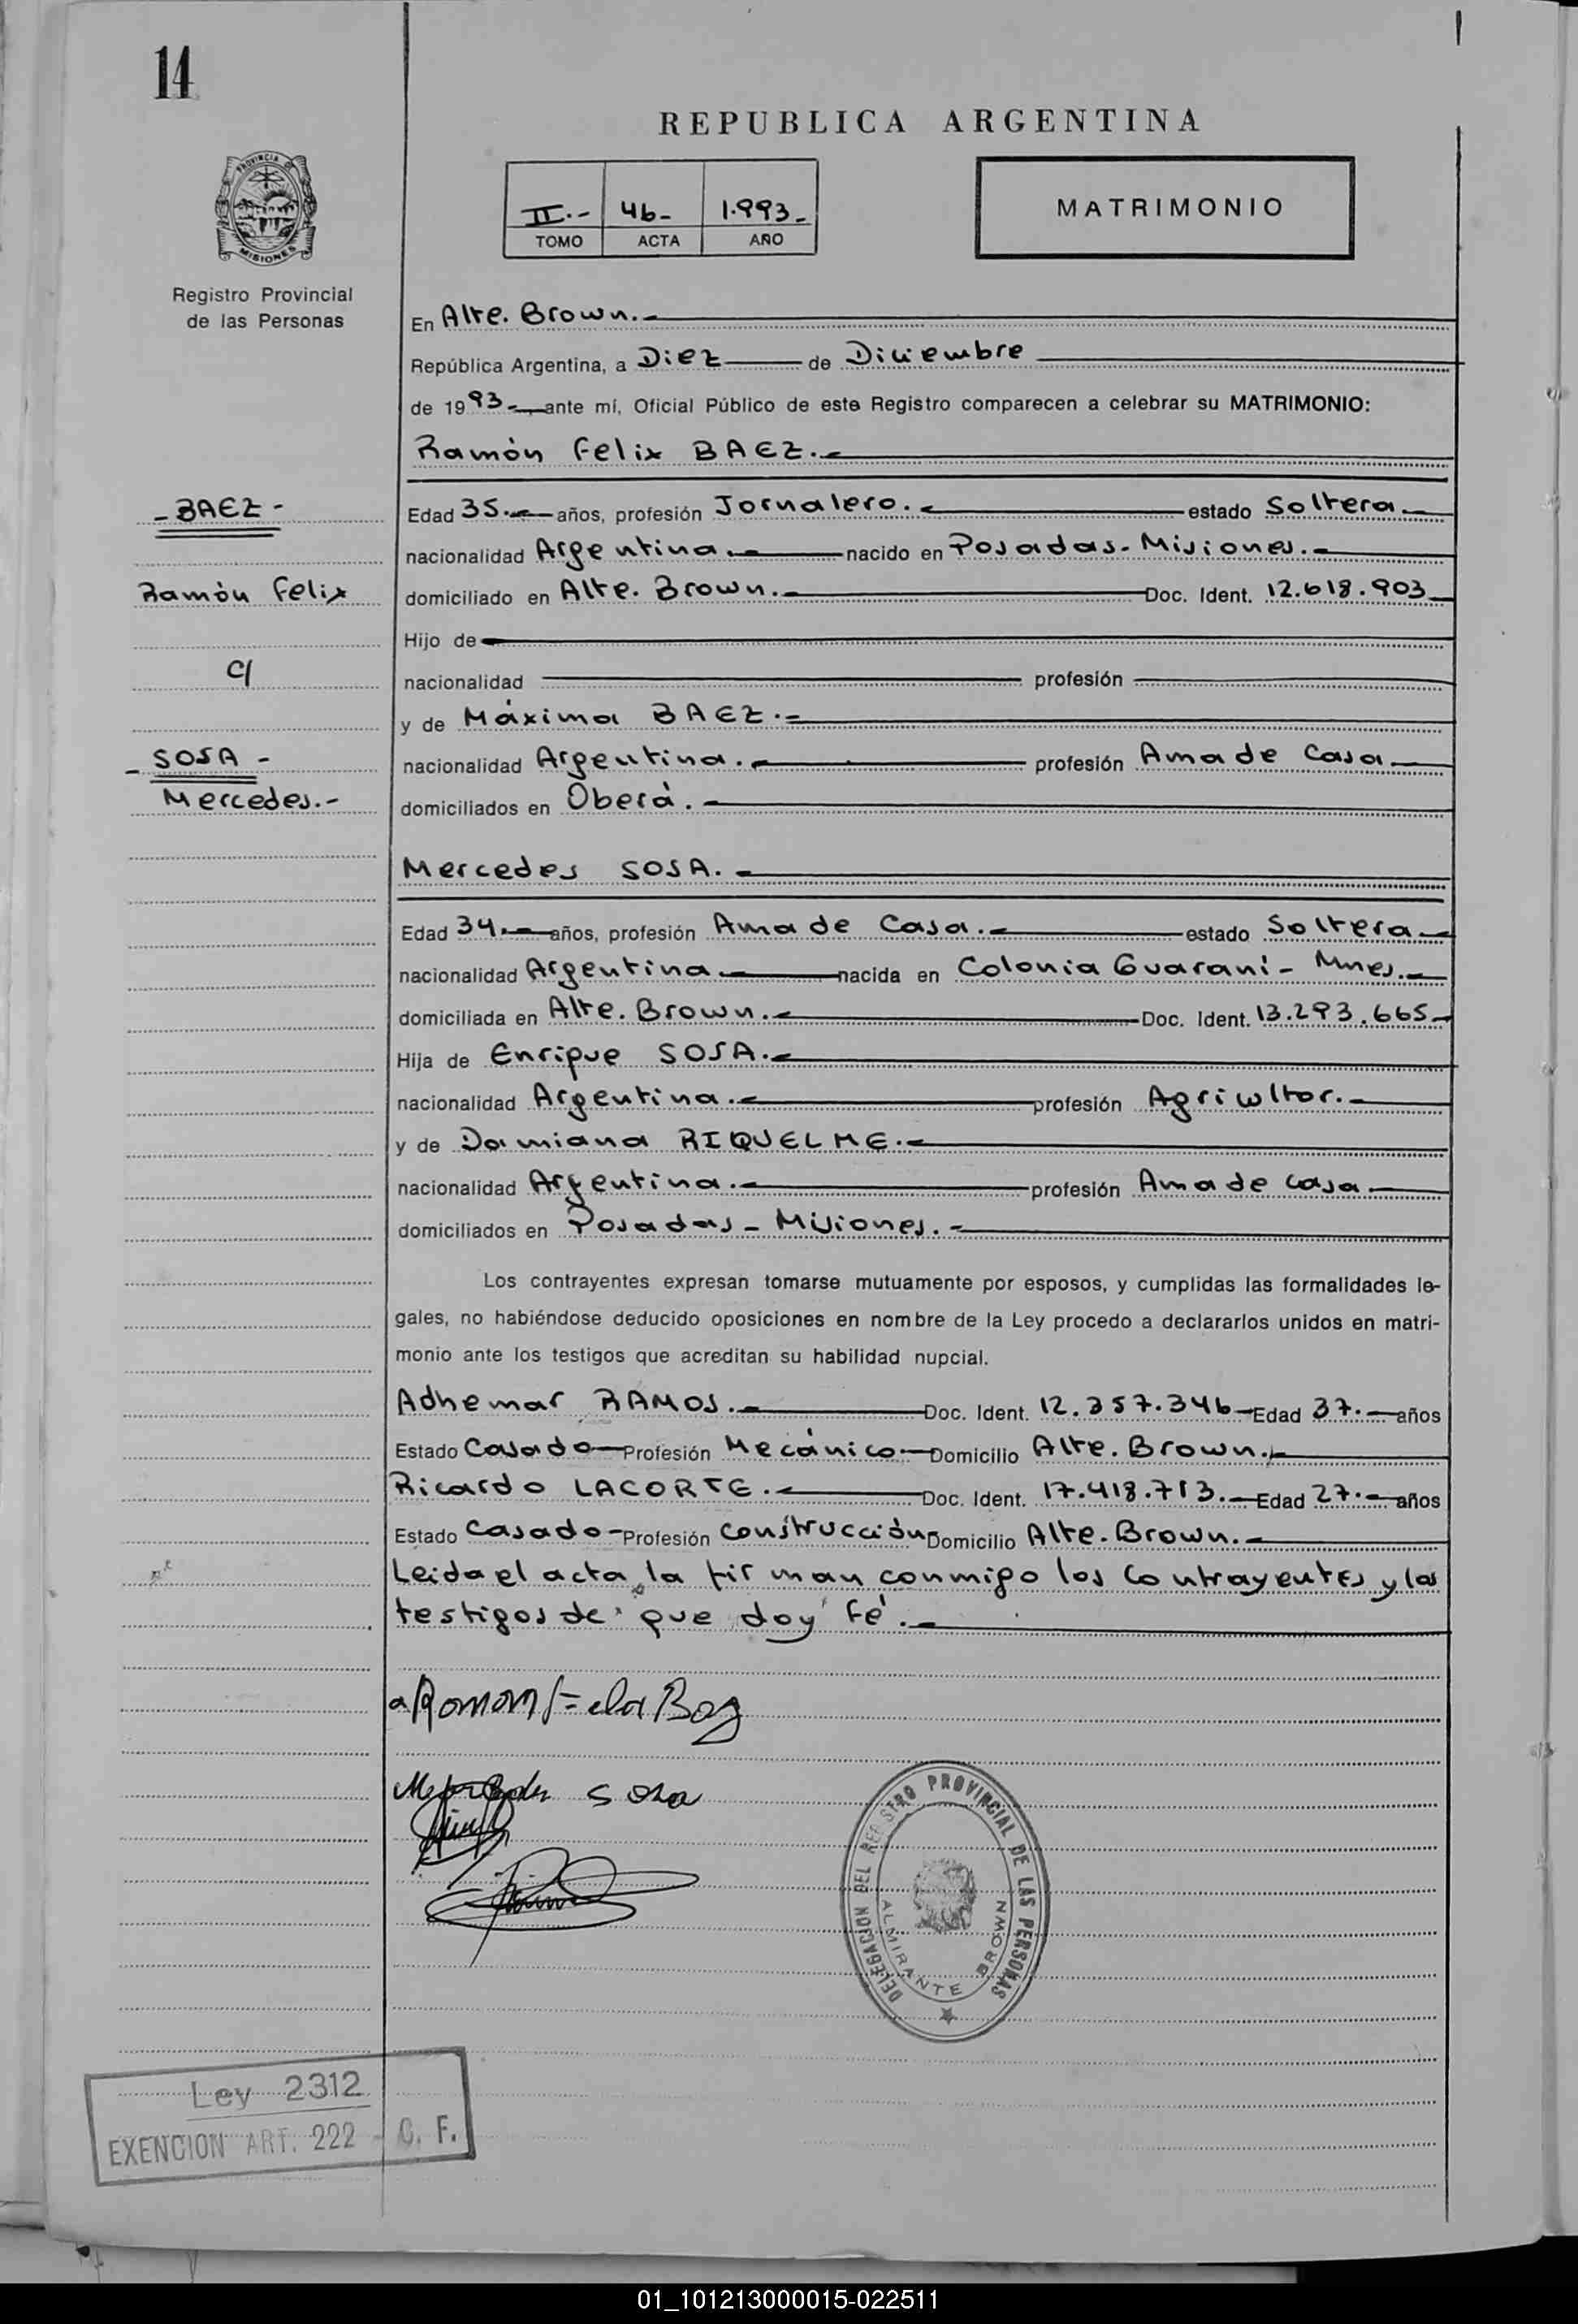 14
REPUBLICA ARGENTINA
II.- 46- 1.993-
TOMO ACTA AÑO
MATRIMONIO
PROVINCIA D MISIONES
Registro Provincial
de las Personas
En Alte. Brown.-
República Argentina, a Diez de Diciembre
de 1993- ante mí, Oficial Público de este Registro comparecen a celebrar su MATRIMONIO:
Ramón Felix BAEZ.-
- BAEZ -
Edad 35.- años, profesión Jornalero.- estado Soltera-
nacionalidad Argentina.- nacido en Posadas-Misiones.-
Ramón Felix
domiciliado en Alte. Brown.- Doc. Ident. 12.618.903-
Hijo de
c/
nacionalidad profesión
y de Máxima BAEZ.-
- SOSA -
nacionalidad Argentina.- profesión Ama de Casa-
Mercedes.-
domiciliados en Oberá.-
Mercedes SOSA.-
Edad 34.- años, profesión Ama de Casa.- estado Soltera-
nacionalidad Argentina- nacida en Colonia Guaraní- Mnes.-
domiciliada en Alte. Brown.- Doc. Ident. 13.293.665-
Hija de Enrique SOSA.-
nacionalidad Argentina.- profesión Agricultor.-
y de Damiana RIQUELME.-
nacionalidad Argentina.- profesión Ama de casa-
domiciliados en Posadas-Misiones.-
Los contrayentes expresan tomarse mutuamente por esposos, y cumplidas las formalidades le-
gales, no habiéndose deducido oposiciones en nombre de la Ley procedo a declararlos unidos en matri-
monio ante los testigos que acreditan su habilidad nupcial.
Adhemar RAMOS.- Doc. Ident. 12.357.346- Edad 37.- años
Estado Casado- Profesión Mecánico- Domicilio Alte. Brown.-
Ricardo LACORTE.- Doc. Ident. 17.418.713.- Edad 27.- años
Estado Casado- Profesión Construcción- Domicilio Alte. Brown.-
Leida el acta, la firman conmigo los contrayentes y los
testigos de que doy fé.-
Sosa
DELEGACION DEL REGISTRO PROVINCIAL DE LAS PERSONAS
ALMIRANTE BROWN
Ley 2312
EXENCION ART. 222 - C. F.
01_101213000015-022511